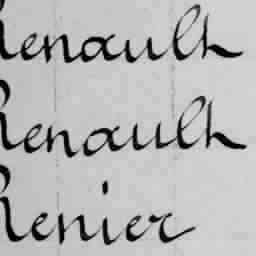 Renault
Renault
Renier